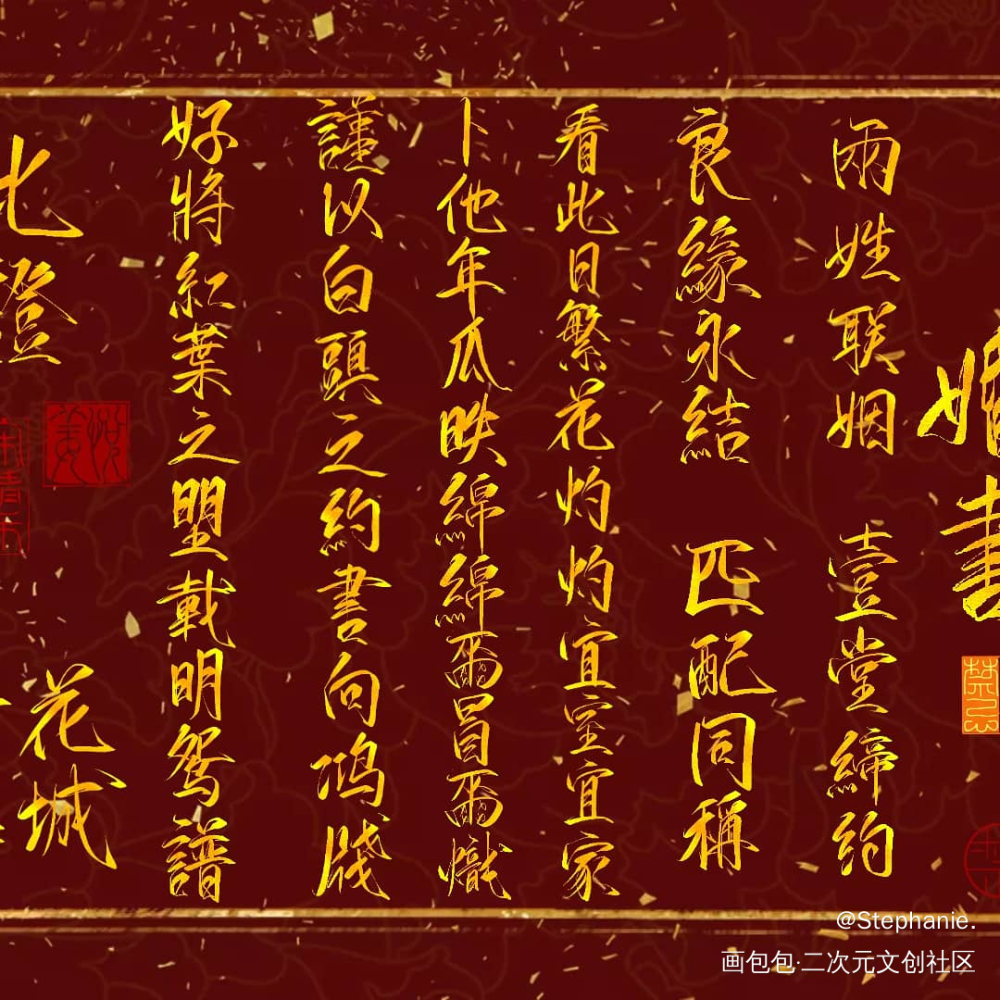 婚書
兩姓联姻 壹堂締約
良緣永結 匹配同稱
看此日繁花灼灼宜室宜家
卜他年瓜昳綿綿爾昌爾熾
謹以白頭之約書向鸿牋
好將紅葉之盟載明鸳譜
花城
@Stephanie.
画包包·二次元文创社区